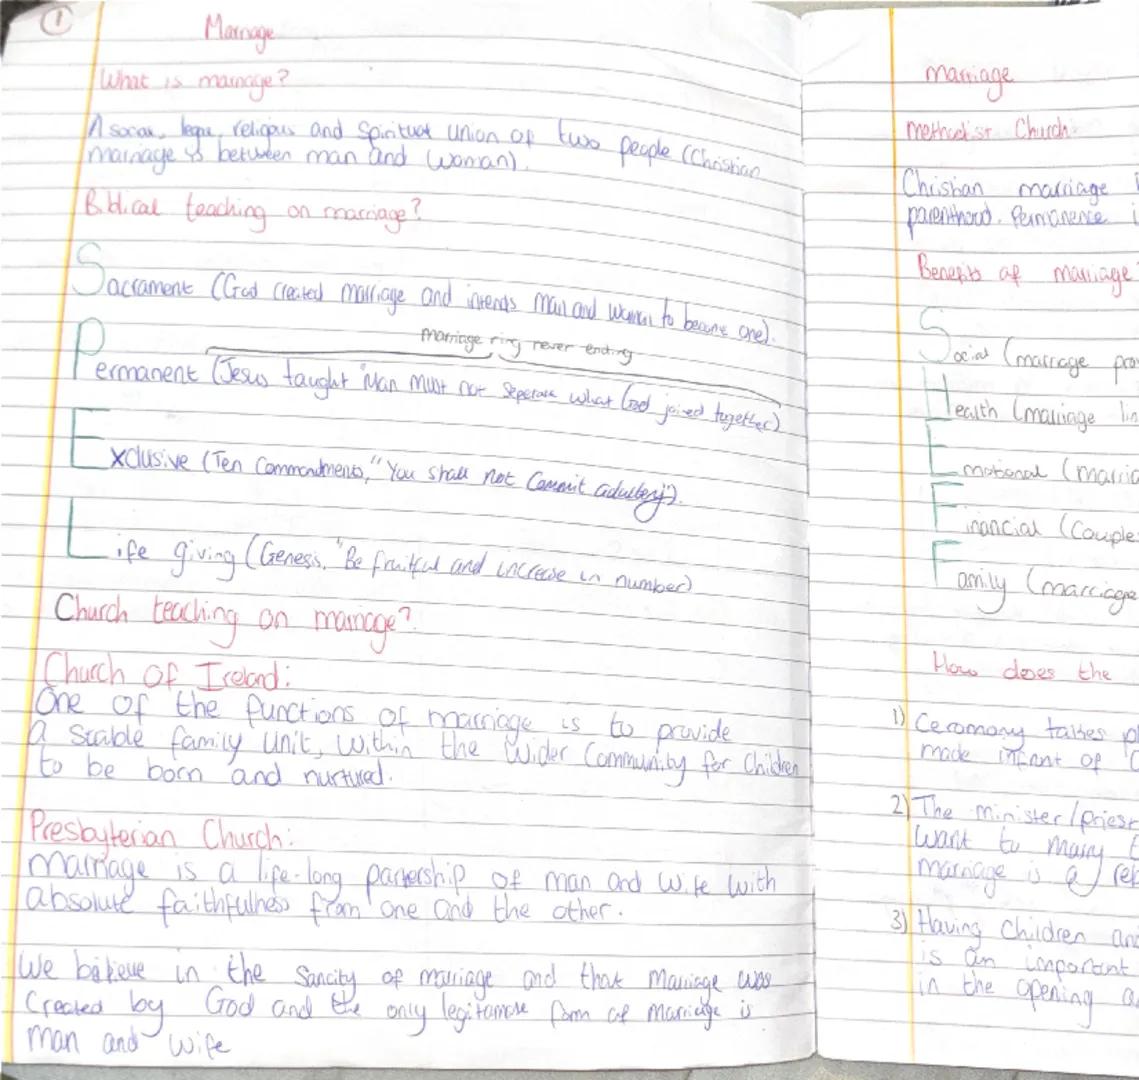 1
Marriage
What is marriage?
A social, legal, religious and Spiritual Union of two people (Christian
marriage is between man and woman).
Biblical teaching on marriage?
Sacrament (God created marriage and intends Man and Woman to become one).
Marriage ring never ending
Permanent (Jesus taught "Man Must not Seperate what God joined together)
Exclusive (Ten Commandments, "You shall not Commit adultery").
Life giving (Genesis, "Be fruitful and increase in number)
Church teaching on marriage?
Church of Ireland:
One of the functions of marriage is to provide
a stable family unit, within the wider Community for Children
to be born and nurtured.
Presbyterian Church:
Marriage is a life-long partership of man and wife with
absolute faithfulness from one and the other.
We believe in the Sancity of marriage and that Marriage was
Created by God and the only legitamate form of Marriage is
Man and wife
Marriage
Methodist Church
Christian marriage
parenthood. Permanence
Benefits of marriage
Social (marriage
Health (marriage
Emotional (
Financial (Couple
Family (marriage
How does the
1) Ceromony takes
made infront of
2) The minister/priest
want to marry
marriage is a
3) Having Children
is an important
in the opening